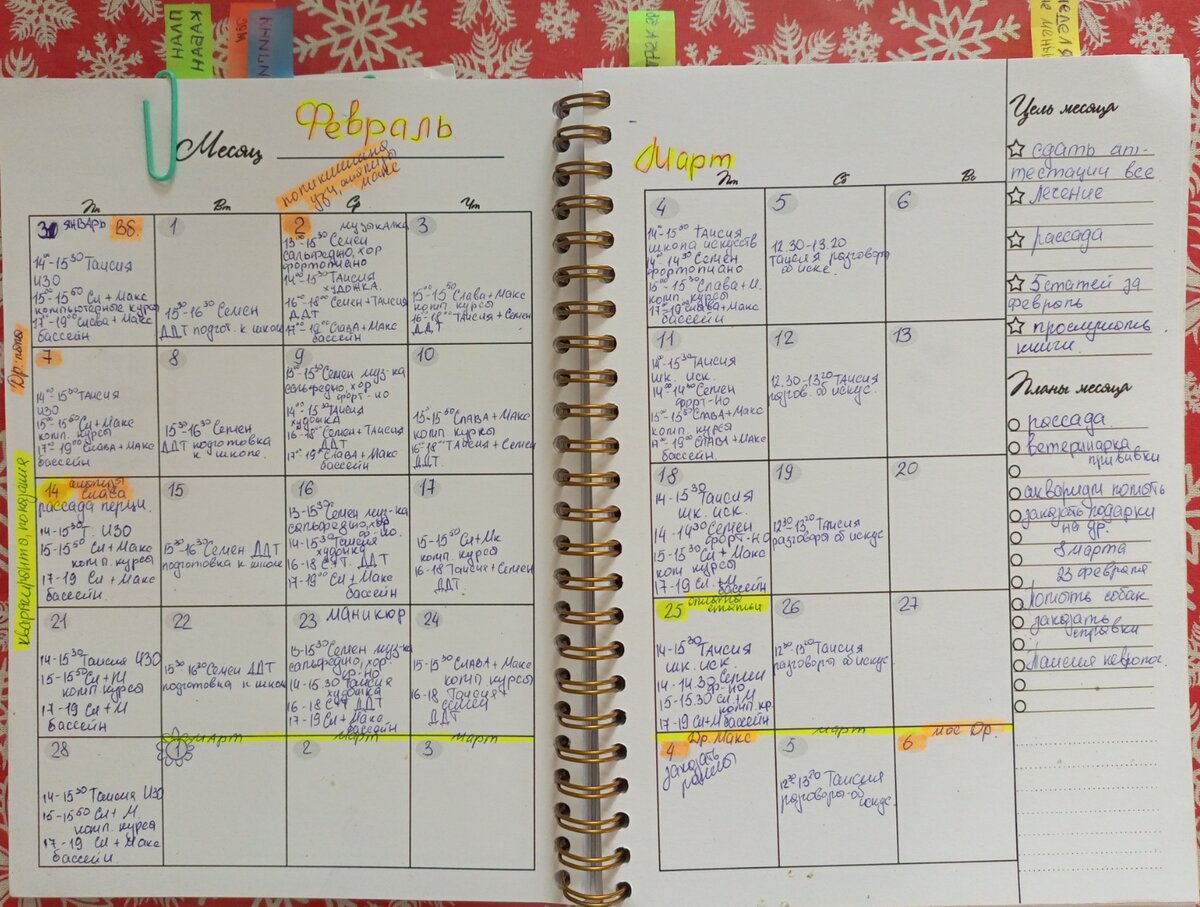 Месяц Февраль
поликлиника
узи, анализы
макс
Пн Вт Ср Чт
ЯНВАРЬ Вб.
14⁰⁰-15³⁰ Таисия
ИЗО
15⁰⁰-15⁵⁰ Сл + Макс
компьютерные курсы
17⁰⁰-19⁰⁰ Слава + Макс
бассейн
1
15³⁰-16³⁰ Семен
ДДТ подгот. к школе
2 музыкалка
13⁰⁰-15³⁰ Семен
сальфедно, хор
фортопиано
14⁰⁰-15³⁰ Таисия
художка.
16⁰⁰-18⁰⁰ Семен + Таисия
ДДТ
17⁰⁰-19⁰⁰ Слава + Макс
бассейн
3
15⁰⁰-15⁵⁰ Слава + Макс
комп. курсы
16⁰⁰-18⁰⁰ Таисия + Семен
ДДТ
Др. папа
7
14⁰⁰-15³⁰ Таисия
ИЗО
15⁰⁰-15⁵⁰ Сл + Макс
комп. курсы
17⁰⁰-19⁰⁰ Слава + Макс
бассейн
8
15³⁰-16³⁰ Семен
ДДТ подготовка
к школе.
9
13⁰⁰-15³⁰ Семен муз-ка
сальфедно, хор
форт-но
14⁰⁰-15³⁰ Таисия
художка
16-18⁰⁰ Семен + Таисия
ДДТ
17⁰⁰-19⁰⁰ Слава + Макс
бассейн
10
15⁰⁰-15⁵⁰ Слава + Макс
комп курсы
16⁰⁰-18⁰⁰ Таисия + Семен
ДДТ.
14 анализы
слава
рассада перцы.
14-15³⁰ Т. ИЗО
15-15⁵⁰ Сл + Макс
комп. курсы
17-19 Сл + Макс
бассейн.
15
15³⁰-16³⁰ Семен ДДТ
подготовка к школе
16
13-15³⁰ Семен муз-ка
сальфедно, хор
14-15³⁰ Таисия
художка
16-18 С+Т. ДДТ
17-19⁰⁰ Сл + Макс
бассейн
17
15-15⁵⁰ Сл + Мк
комп. курсы
16-18 Таисия + Семен
ДДТ
21
14-15³⁰ Таисия ИЗО
15-15⁵⁰ Сл + М
комп курсы
17-19 Сл + М
бассейн
22
15³⁰-16³⁰ Семен ДДТ
подготовка к школе
23 маникюр
13-15³⁰ Семен муз-ка
сальфедно, хор
ф-но
14-15.30 Таисия
художка
16-18 С+Т ДДТ
17-19 Сл + Макс
бассейн
24
15-15³⁰ Слава + Макс
комп курсы
16-18 Таисия
Семен
ДДТ
28
14-15³⁰ Таисия ИЗО
15-15⁵⁰ Сл + М
комп. курса
17-19 Сл + Макс
бассейн.
1 март
2 март
3 март
Март
Пт Сб Вс
4
14⁰⁰-15³⁰ Таисия
школа искусств
14⁰⁰-14³⁰ Семен
фортопиано
15⁰⁰-15⁵⁰ Слава + М.
комп. курсы
17⁰⁰-19⁰⁰ Слава + Макс
бассейн
5
12.30-13.20
Таисия разговоры
об иске.
6
11
14-15³⁰ Таисия
шк. иск.
14⁰⁰-14³⁰ Семен
форт-но
15⁰⁰-15⁵⁰ Слава + Макс
комп. курсы
17-19⁰⁰ Слава + Макс
бассейн.
12
12.30-13²⁰ Таисия
разгов. об искус.
13
18
14-15³⁰ Таисия
шк. иск.
14-14³⁰ Семен
форт-но
15-15³⁰ Сл + М
комп курсы
17-19 Сл. + М
бассейн
19
12³⁰-13²⁰ Таисия
разговоры об искус
20
25 оплаты
статьи
14-15³⁰ Таисия
шк. иск.
14-14.30 Семен
ф-но
15-15.30 Сл + М
комп. кр.
17-19 Сл + М бассейн
26
12³⁰-13²⁰ Таисия
разговоры об искус.
27
4 Др. Макс
заказать
5 март
12³⁰-13²⁰ Таисия
разговоры-об
искус.
6 мое Др.
Цель месяца
сдать ат-
тестации все
лечение
рассада
5 статей за
февраль
прослушать
книги
Планы месяца
рассада
ветеринарка
прививки
аквариум помыть
заказать подарки
на др.
8 марта
23 февраля
помыть собак
заказать
справки
Таисия невролог.